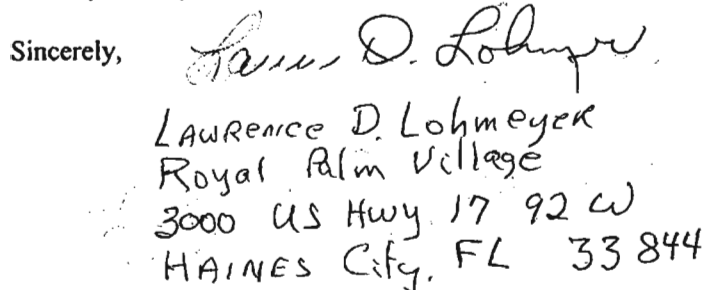 Sincerely, Lawrence D. Lohmeyer
LAWRence D. Lohmeyer
Royal Palm Village
3000 US Hwy 17 92 W
HAINES City, FL 33844